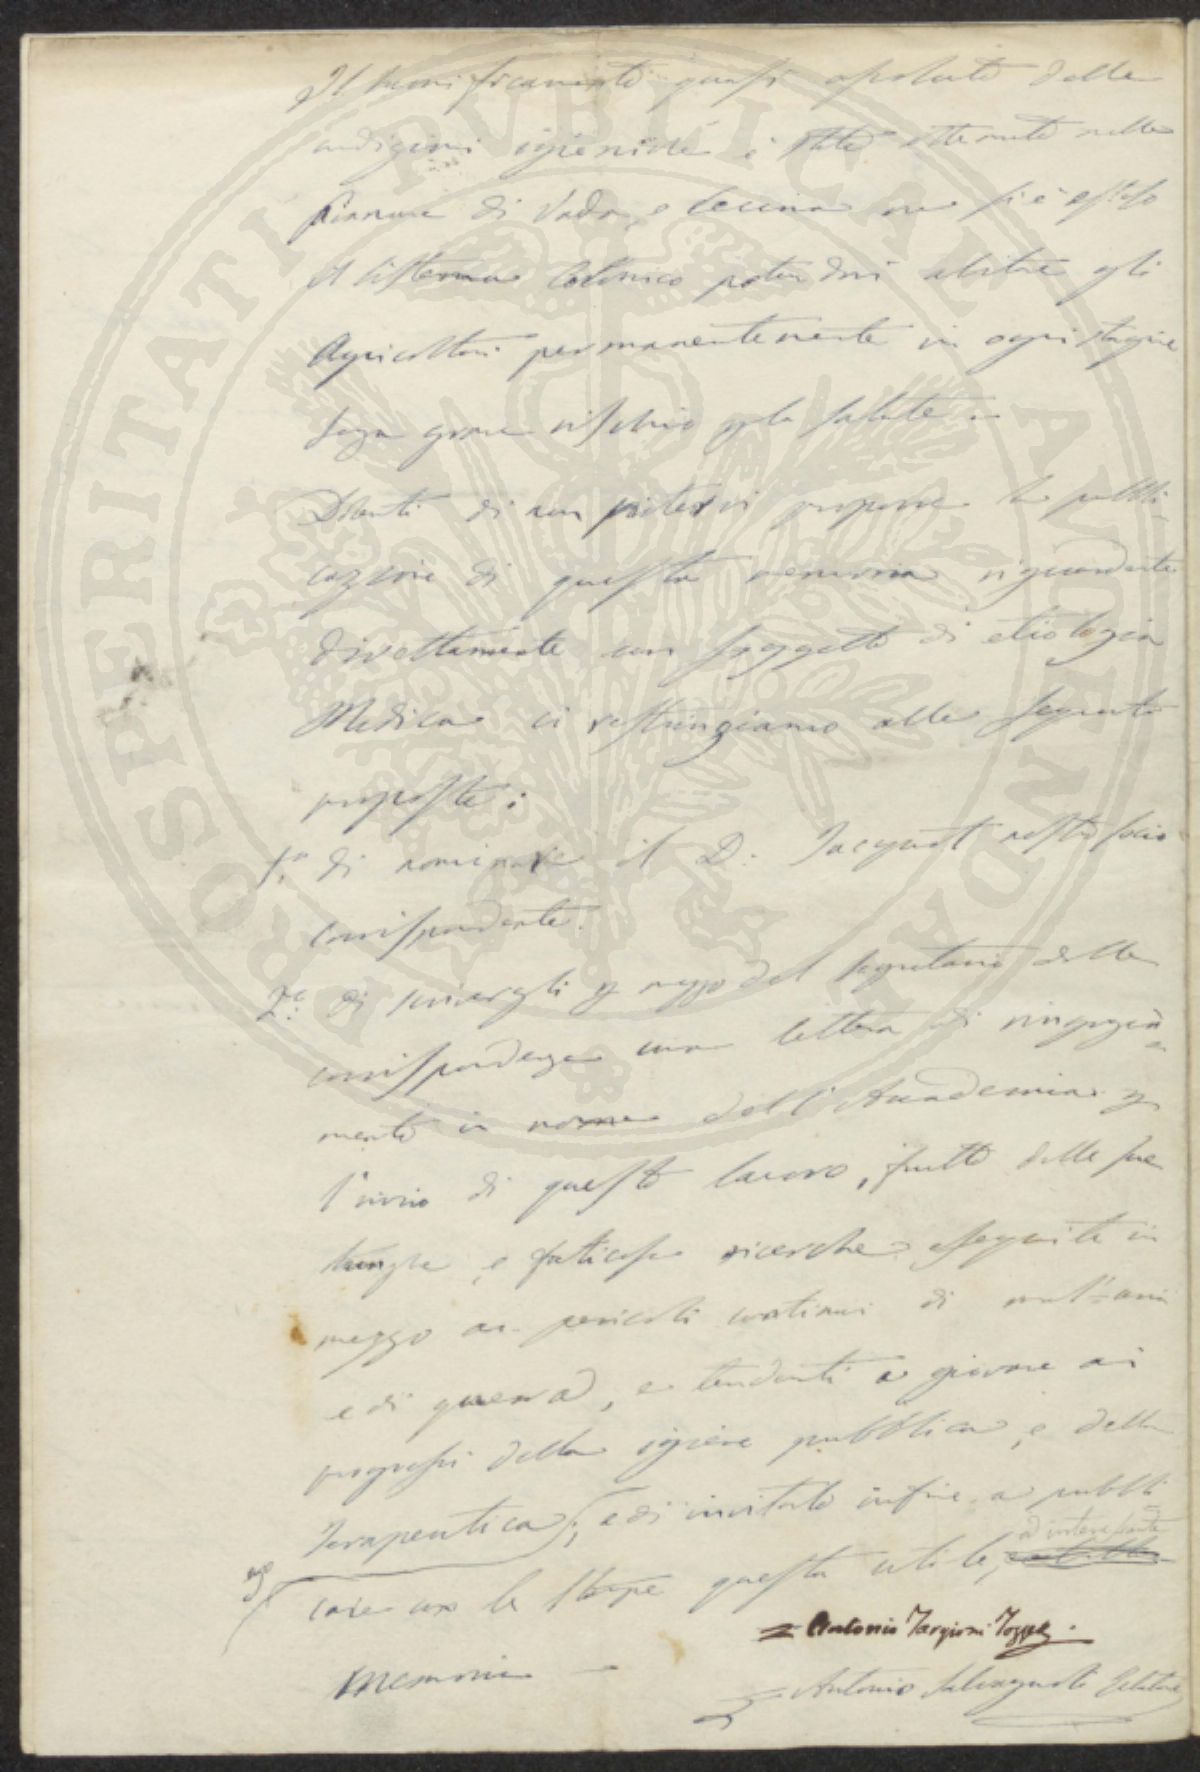 Il bonificamento quasi assoluto delle
condizioni igieniche è stato ottenuto nella
Pianura di Vada, e Cecina ove si è esteso
il sistema Colonico potendovi abitare gli
Agricoltori permanentemente in ogni stagione
senza grave rischio per la salute.
Dolenti di non potervi proporre la pubbli
cazione di questa memoria riguardante
direttamente un soggetto di etiologia
Medica ci restringiamo alle seguenti
proposte:
1.a di nominare il D. Jacquot nostro socio
corrispondente.
2.a di scrivergli per mezzo del segretario delle
corrispondenze una lettera di ringrazia
mento in nome dell'Accademia per
l'invio di questo lavoro, frutto delle sue
lunghe, e faticose ricerche eseguite in
mezzo ai pericoli continui di mal'aria
e di guerra, e tendenti a giovare ai
progressi della igiene pubblica, e della
Terapeutica; e di invitarlo infine a pubbli
ed interessante
care con le stampe questa utile,
Antonio Targioni Tozzetti.
Memoria
Antonio Salvagnoli Relatore
PROSPERITATI PVBLICAE AVGENDAE